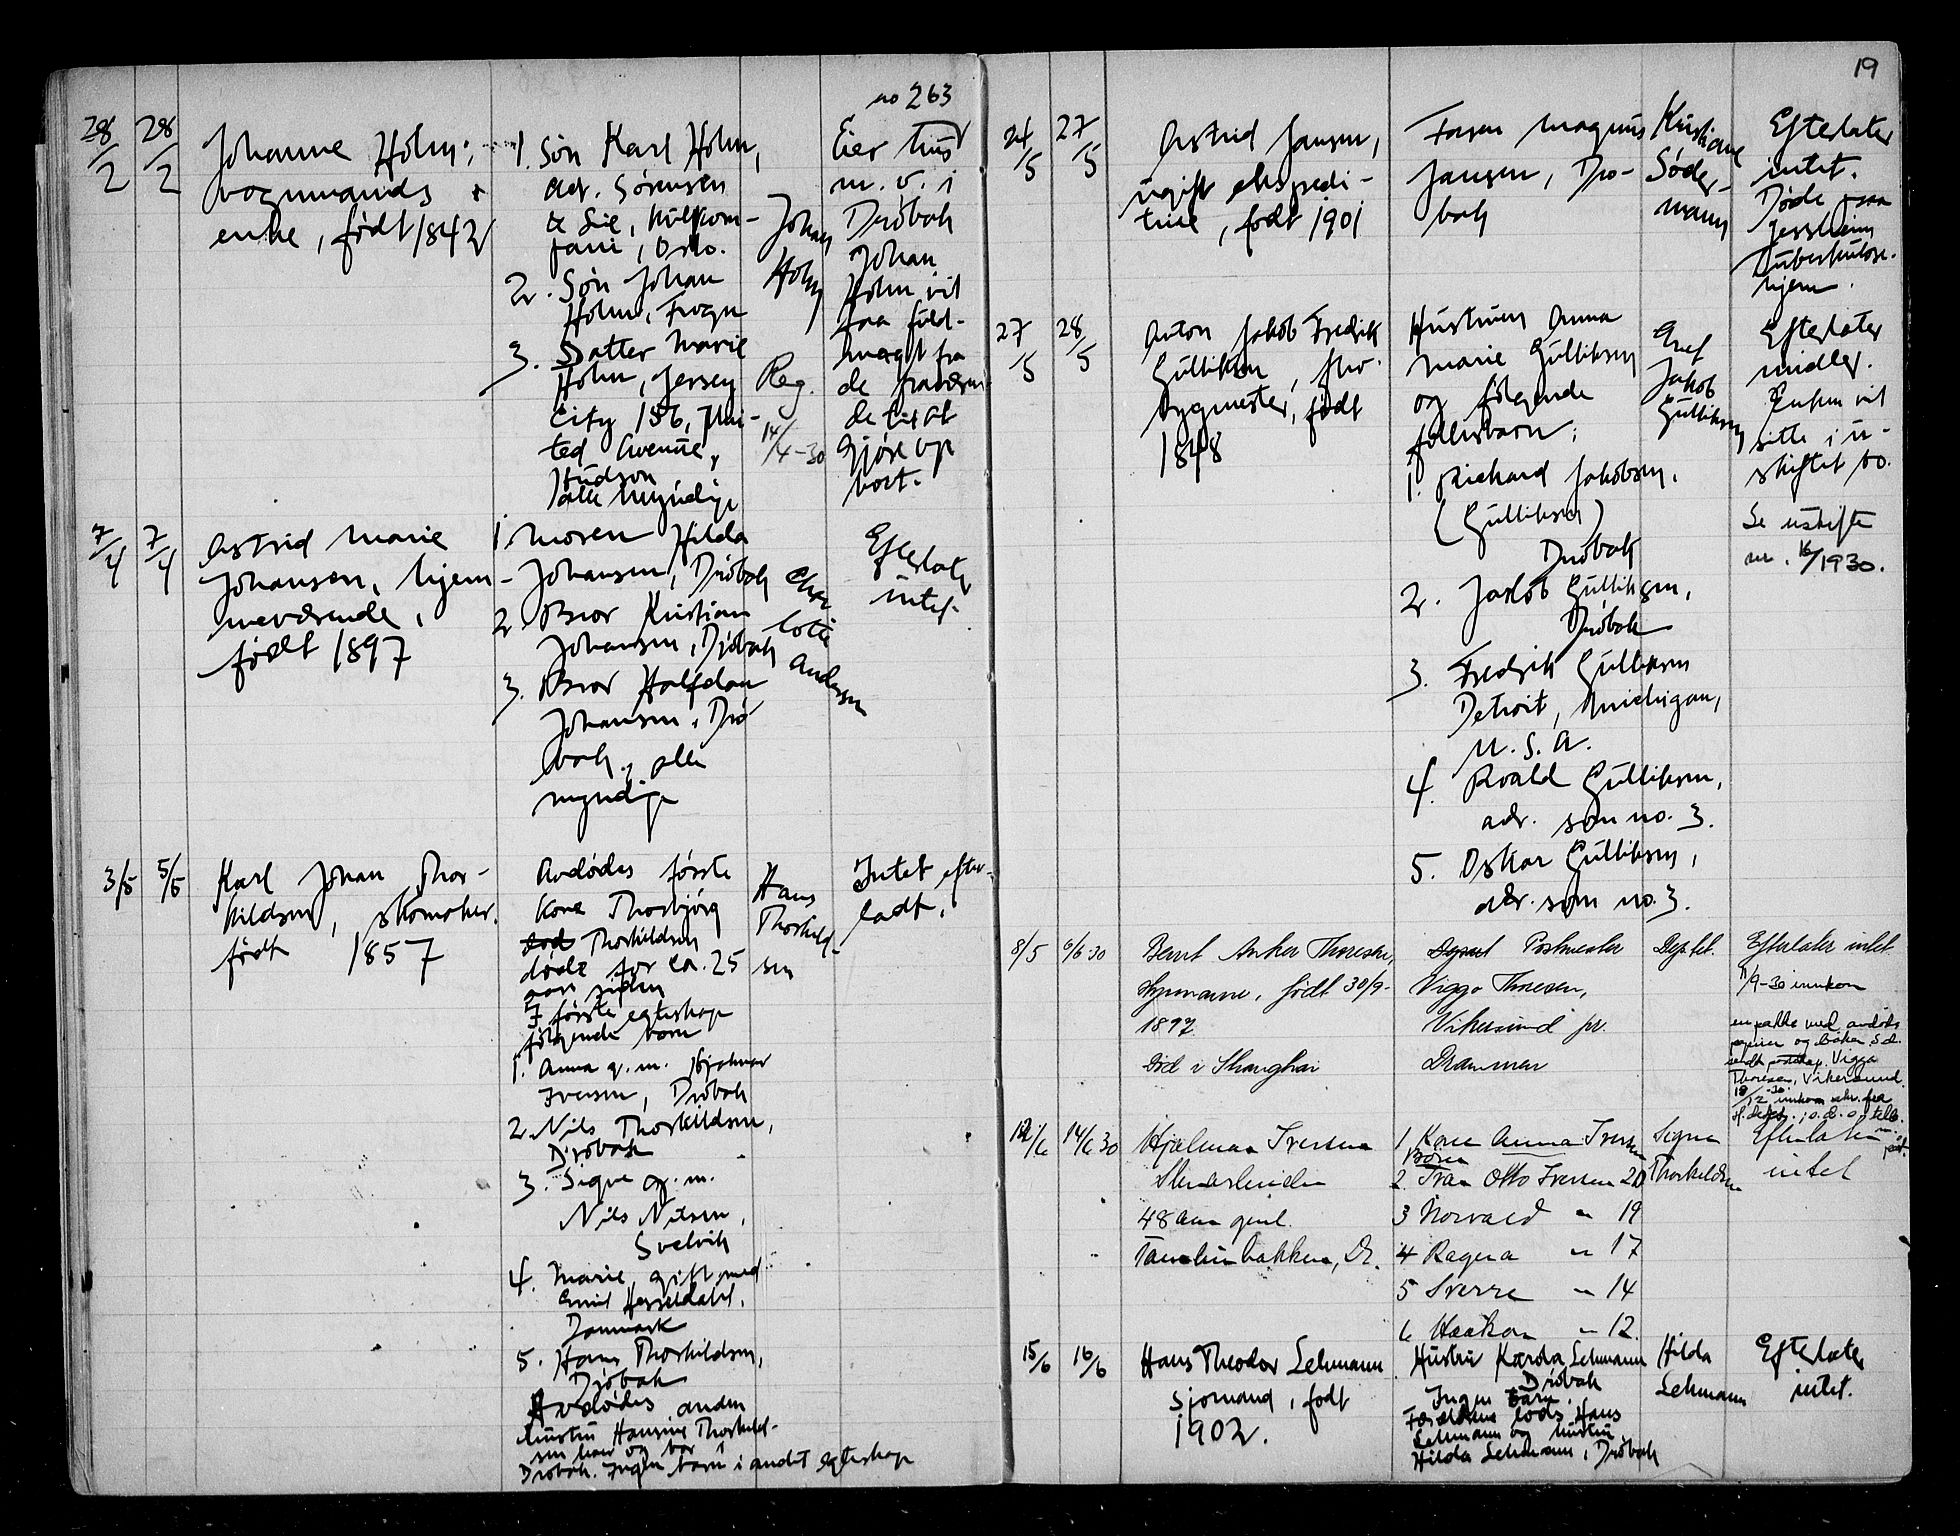 no 263
28/2
28/2
Johanne Holm,
vognmands
enke, født 1842
1. Søn Karl Holm,
adr. Sørensen
& Sie, Kulkom-
pani, Oslo.
2. Søn Johan
Holm, Frogn
3. Datter Marie
Holm, Jersey
City 156, Uni-
ted Avenue,
Hudson
alle myndige
Johan
Holm
Reg.
14/4-30
Eier hus
m. v. i
Drøbak
Johan
Holm vil
faa fuld-
magt fra
de
de til at
gjøre op
boet.
7/4
7/4
Astrid Marie
Johansen, hjem-
meværende,
født 1897
1. Moren Hilda
Johansen, Drøbak
2. Bror Kristian
Johansen, Drøbak
3. Bror Halfdan
Johansen, Drø
bak, alle
myndige
Char
lotte
Andersen
Efterlater
intet.
3/5
5/5
Karl Johan Thor-
kildsen, skomaker.
født 1857
Avdødes første
kone Thorbjørg
Thorkildsen
døde for ca. 25
aar siden
I første egteskap
følgende barn
1. Anna g. m. Hjalmar
Iversen, Drøbak
2. Nils Thorkildsen,
Drøbak
3. Signe g. m.
Nils Nilsen,
Svelvik
4. Marie, gift med
Emil Hesseldahl,
Danmark
5. Hans Thorkildsen,
Drøbak
Avdødes anden
hustru Hansine Thorkild-
sen
Drøbak. Ingen barn i andet egteskap
Hans
Thorkild-
sen
Intet efter-
ladt.
19
24/5
27/5
Astrid Jansen,
ugift ekspedi-
trice, født 1901
Faren Magnus
Jansen, Drø-
bak
Kristiane
Søder-
mann
Efterlater
intet.
Døde paa
Jessheim
Tuberkulose-
hjem.
27/5
28/5
Anton Jakob Fredrik
Gulliksen, skibs-
bygmester, født
1848
Hustruen Anna
Marie Gulliksen
og følgende
fællesbarn:
1. Richard Jakobsen.
(Gulliksen)
Drøbak
2. Jakob Gulliksen,
Drøbak
3. Fredrik Gulliksen
Detroit, Michigan,
U. S. A.
4. Roald Gulliksen,
adr. som no. 3.
5. Oskar Gulliksen,
adr. som no. 3.
Jakob
Gulliksen
Efterlater
midler.
Enken vil
sitte i u-
skiftet bo.
Se uskifte
nr. 16/1930.
8/5
6/6 30
Bernt Anker Thoresen,
styrmann, født 30/9-
1897
Død i Shanghai
Postmester
Viggo Thoresen,
Vikersund pr.
Drammen
Dep.tet.
Efterlater intet
11/9-30 innkom
en pakke med avdødes
papirer og bøker s.d.
sendt posteksp. Viggo
Thoresen, Vikersund.
12/6
14/6 30
Hjalmar Iversen
Stenarbeider
48 aar gml.
Tamburbakken, Dr.
1 Kone Anna Iversen
Børn
2. Fran Otto Iversen 20
3 Norvald " 19
4 Ragna " 17
5 Sverre " 14
6 Haakon " 12.
Signe
Thorkildsen
Efterlater
intet
15/6
16/6
Hans Theodor Lehmann
sjømand, født
1902.
Hustru Karda Lehmann
Drøbak
Ingen barn.
Forældrene lods Hans
Lehmann og hustru
Hilda Lehmann, Drøbak
Hilda
Lehmann
Efterlater
intet.